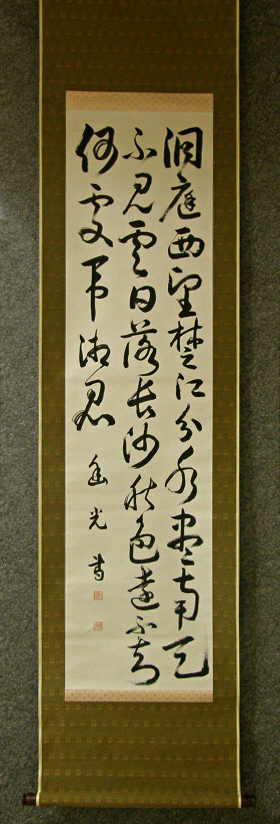 洞庭西望楚江分水盡南天
不見雲日落長沙秋色遠不知
何處弔湘君
光書